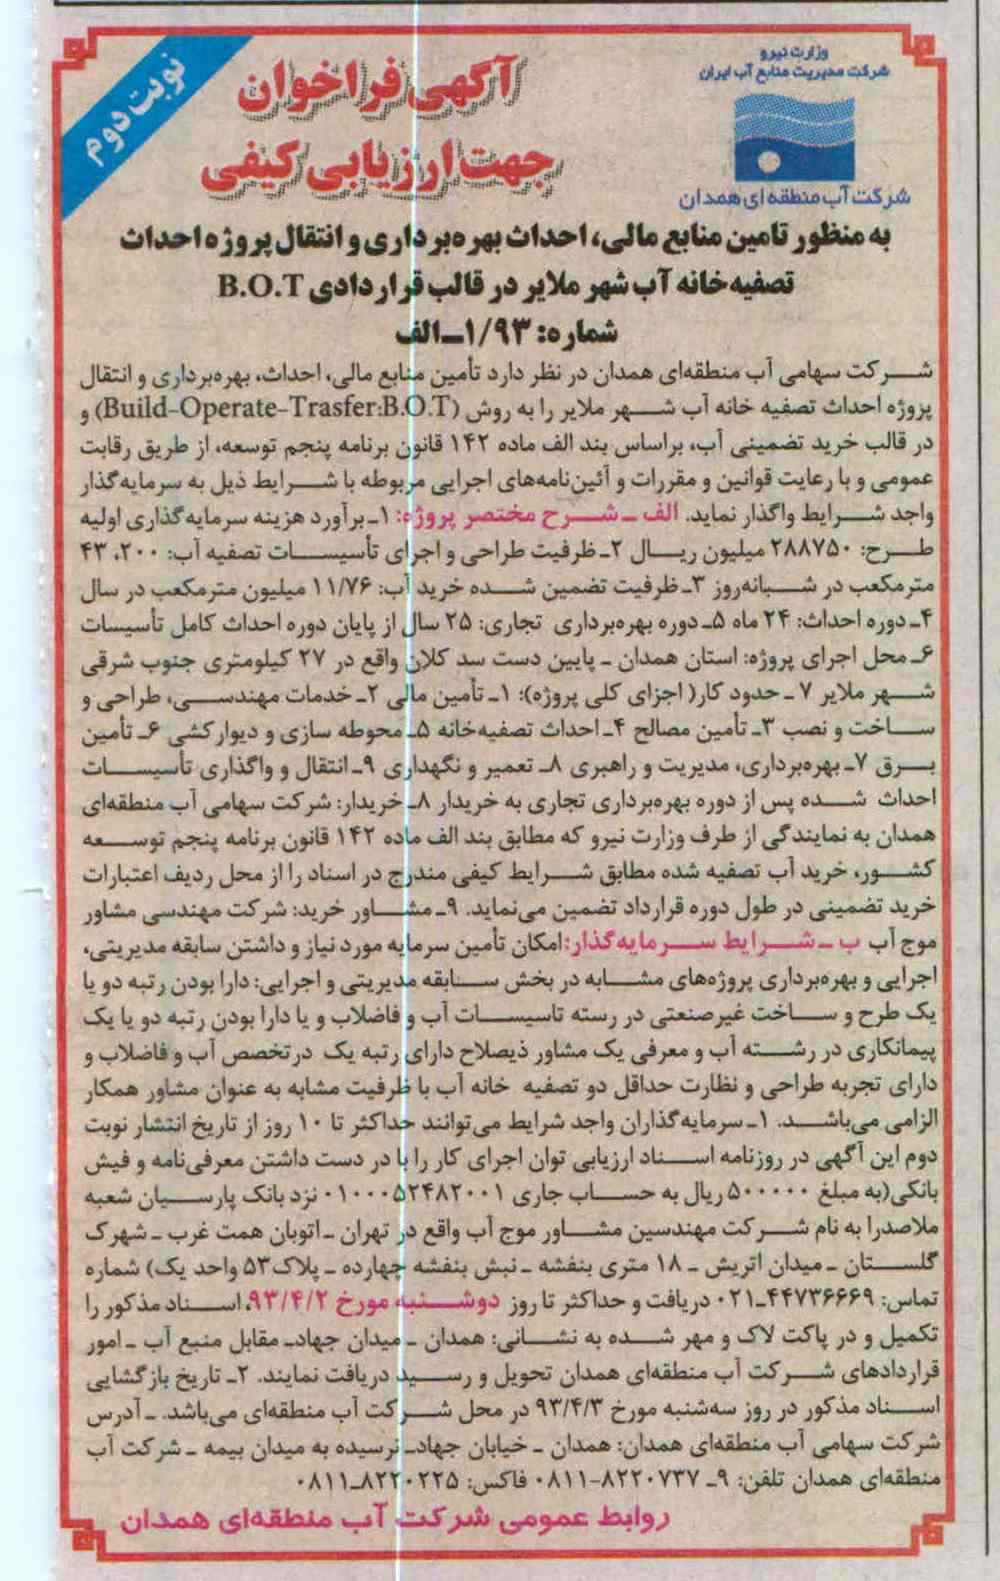 وزارت نیرو
شرکت مدیریت منابع آب ایران
شرکت آب منطقه‌ای همدان
نوبت دوم
آگهی فراخوان
جهت ارزیابی کیفی
به منظور تامین منابع مالی، احداث بهره برداری و انتقال پروژه احداث
تصفیه خانه آب شهر ملایر در قالب قراردادی B.O.T
شماره: ۱/۹۳ـ الف
شرکت سهامی آب منطقه‌ای همدان در نظر دارد تأمین منابع مالی، احداث، بهره‌برداری و انتقال
پروژه احداث تصفیه خانه آب شهر ملایر را به روش (Build-Operate-Trasfer:B.O.T) و
در قالب خرید تضمینی آب، براساس بند الف ماده ۱۴۲ قانون برنامه پنجم توسعه، از طریق رقابت
عمومی و با رعایت قوانین و مقررات و آئین‌نامه‌های اجرایی مربوطه با شرایط ذیل به سرمایه‌گذار
واجد شرایط واگذار نماید. الف ـ شرح مختصر پروژه: ۱ـ برآورد هزینه سرمایه‌گذاری اولیه
طرح: ۲۸۸۷۵۰ میلیون ریال ۲ـ ظرفیت طراحی و اجرای تأسیسات تصفیه آب: ۴۳،۲۰۰
مترمکعب در شبانه‌روز ۳ـ ظرفیت تضمین شده خرید آب: ۱۱/۷۶ میلیون مترمکعب در سال
۴ـ دوره احداث: ۲۴ ماه ۵ـ دوره بهره‌برداری تجاری: ۲۵ سال از پایان دوره احداث کامل تأسیسات
۶ـ محل اجرای پروژه: استان همدان ـ پایین دست سد کلان واقع در ۲۷ کیلومتری جنوب شرقی
شهر ملایر ۷ ـ حدود کار( اجزای کلی پروژه): ۱ـ تأمین مالی ۲ـ خدمات مهندسی، طراحی و
ساخت و نصب ۳ـ تأمین مصالح ۴ـ احداث تصفیه‌خانه ۵ـ محوطه سازی و دیوارکشی ۶ـ تأمین
برق ۷ـ بهره‌برداری، مدیریت و راهبری ۸ـ تعمیر و نگهداری ۹ـ انتقال و واگذاری تأسیسات
احداث شده پس از دوره بهره‌برداری تجاری به خریدار ۸ـ خریدار: شرکت سهامی آب منطقه‌ای
همدان به نمایندگی از طرف وزارت نیرو که مطابق بند الف ماده ۱۴۲ قانون برنامه پنجم توسعه
کشور، خرید آب تصفیه شده مطابق شرایط کیفی مندرج در اسناد را از محل ردیف اعتبارات
خرید تضمینی در طول دوره قرارداد تضمین می‌نماید. ۹ـ مشاور خرید: شرکت مهندسی مشاور
موج آب ب ـ شرایط سرمایه‌گذار: امکان تأمین سرمایه مورد نیاز و داشتن سابقه مدیریتی،
اجرایی و بهره‌برداری پروژه‌های مشابه در بخش سابقه مدیریتی و اجرایی: دارا بودن رتبه دو یا
یک طرح و ساخت غیرصنعتی در رسته تاسیسات آب و فاضلاب و یا دارا بودن رتبه دو یا یک
پیمانکاری در رشته آب و معرفی یک مشاور ذیصلاح دارای رتبه یک درتخصص آب و فاضلاب و
دارای تجربه طراحی و نظارت حداقل دو تصفیه خانه آب با ظرفیت مشابه به عنوان مشاور همکار
الزامی می‌باشد. ۱ـ سرمایه‌گذاران واجد شرایط می‌توانند حداکثر تا ۱۰ روز از تاریخ انتشار نوبت
دوم این آگهی در روزنامه اسناد ارزیابی توان اجرای کار را با در دست داشتن معرفی‌نامه و فیش
بانکی(به مبلغ ۵۰۰۰۰۰ ریال به حساب جاری ۰۱۰۰۰۵۲۴۸۲۰۰۱ نزد بانک پارسیان شعبه
ملاصدرا به نام شرکت مهندسین مشاور موج آب واقع در تهران ـ اتوبان همت غرب ـ شهرک
گلستان ـ میدان اتریش ـ ۱۸ متری بنفشه ـ نبش بنفشه چهارده ـ پلاک۵۳ واحد یک) شماره
تماس: ۴۴۷۳۶۶۶۹ـ۰۲۱ دریافت و حداکثر تا روز دوشنبه مورخ ۹۳/۴/۲، اسناد مذکور را
تکمیل و در پاکت لاک و مهر شده به نشانی: همدان ـ میدان جهادـ مقابل منبع آب ـ امور
قراردادهای شرکت آب منطقه‌ای همدان تحویل و رسید دریافت نمایند. ۲ـ تاریخ بازگشایی
اسناد مذکور در روز سه‌شنبه مورخ ۹۳/۴/۳ در محل شرکت آب منطقه‌ای می‌باشد. ـ آدرس
شرکت سهامی آب منطقه‌ای همدان: همدان ـ خیابان جهادـ نرسیده به میدان بیمه ـ شرکت آب
منطقه‌ای همدان تلفن: ۹ـ ۸۲۲۰۷۳۷-۰۸۱۱ فاکس: ۸۲۲۰۲۲۵ـ۰۸۱۱
روابط عمومی شرکت آب منطقه‌ای همدان